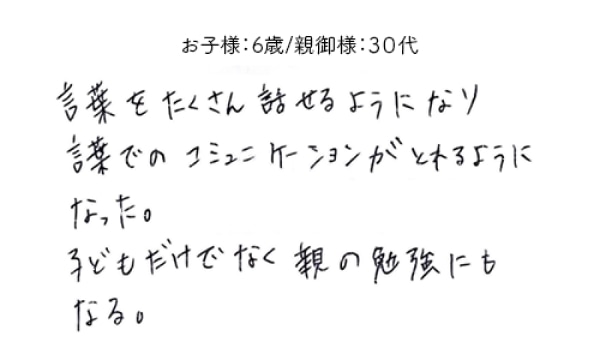 お子様：6歳/親御様：30代
言葉をたくさん話せるようになり
言葉でのコミュニケーションがとれるように
なった。
子どもだけでなく親の勉強にも
なる。